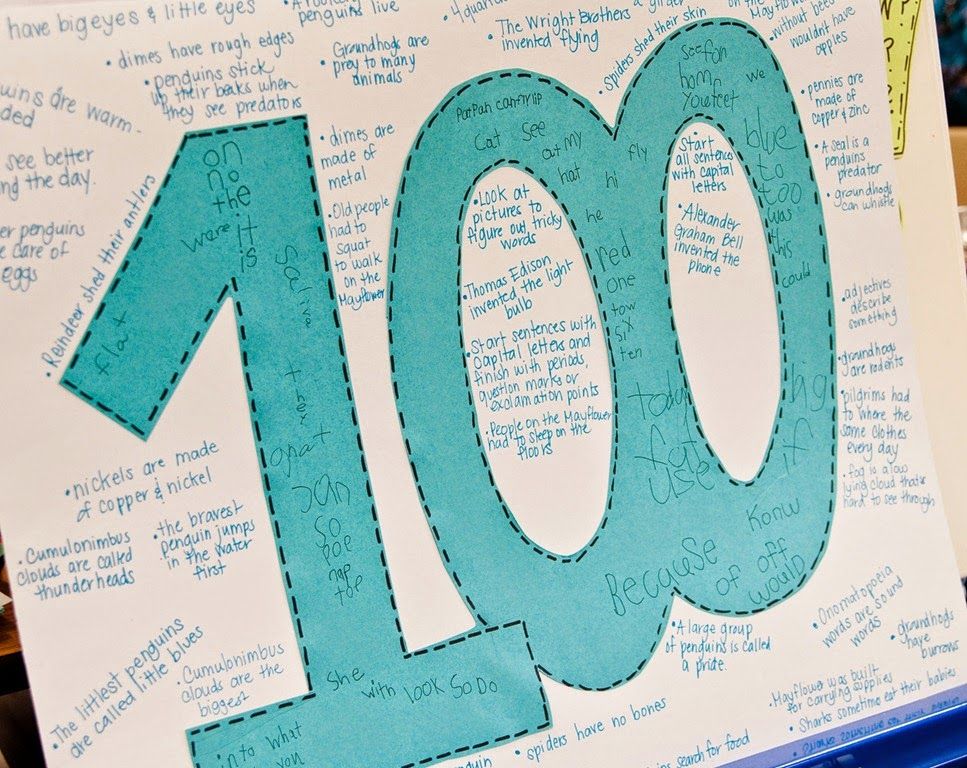 have big eyes & little eyes
penguins live
• The Wright Brothers
invented flying
• spiders shed their skin
without bees
wouldn't have
apples
• dimes have rough edges
• penguins stick
up their beaks when
they see predators
• Groundhogs are
prey to many
animals
are warm.
see better
the day.
penguins
care of
eggs
• Reindeer shed their antlers
• dimes are
made of
metal
• Old people
had to
squat
to walk
on the
Mayflower
• pennies are
made of
copper & zinc
• A seal is a
penguins
predator
• groundhogs
can whistle
• adjectives
describe
something
• groundhogs
are rodents
• pilgrims had
to where the
same clothes
every day
• fog is a low
lying cloud that's
hard to see through
100
on
no
the
were it
is
flat
that
Jan
so
pop
nap
top
she with look So Do
into what
you
Cat see
my
hat hi
fly
see fon
home
You feet
we
blue
to
too
was
this
could
he
red
one
tow
six
ten
today
if
Konw
Because of off
would
• Look at
pictures to
figure out tricky
words
• Thomas Edison
invented the light
bulb
• Start sentences with
capital letters and
finish with periods,
question marks or
exclamation points
• People on the Mayflower
had to sleep on the
floors
• Start
all sentences
with capital
letters
• Alexander
Graham Bell
invented the
phone
• nickels are made
of copper & nickel
• Cumulonimbus
clouds are called
thunderheads
• the bravest
penguin jumps
in the water
first
• The littlest penguins
are called little blues
• Cumulonimbus
clouds are the
biggest
• A large group
of penguins is called
a pride.
• Onomatopoeia
words are sound
words
• groundhogs
have
burrows
• Mayflower was built
for carrying supplies
• Sharks sometimo eat their babies
• spiders have no bones
search for food